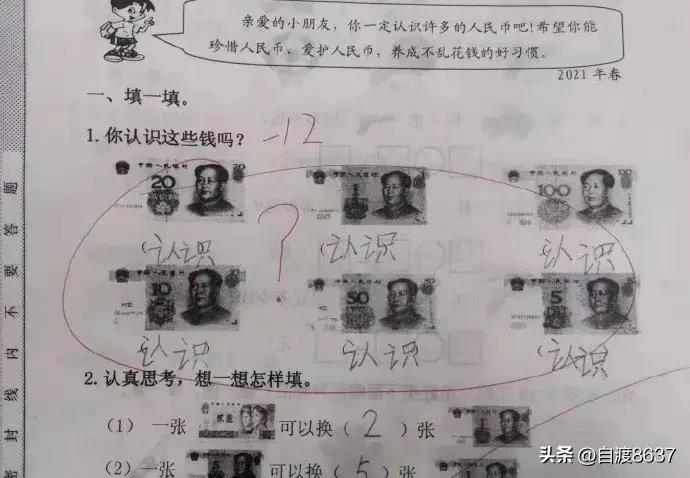 亲爱的小朋友,你一定认识许多的人民币吧!希望你能
珍惜人民币、爱护人民币,养成不乱花钱的好习惯。
2021年春
一、填一填。
1.你认识这些钱吗? -12
20 1 100 100
?
认识 认识 认识
10 50 5
认识 认识 认识
2.认真思考,想一想怎样填。
(1) 一张 贰圆 可以换( 2 )张 1
(2) 一张 5 可以换( 5 )张
密封线内不要答题
头条 @自渡8637